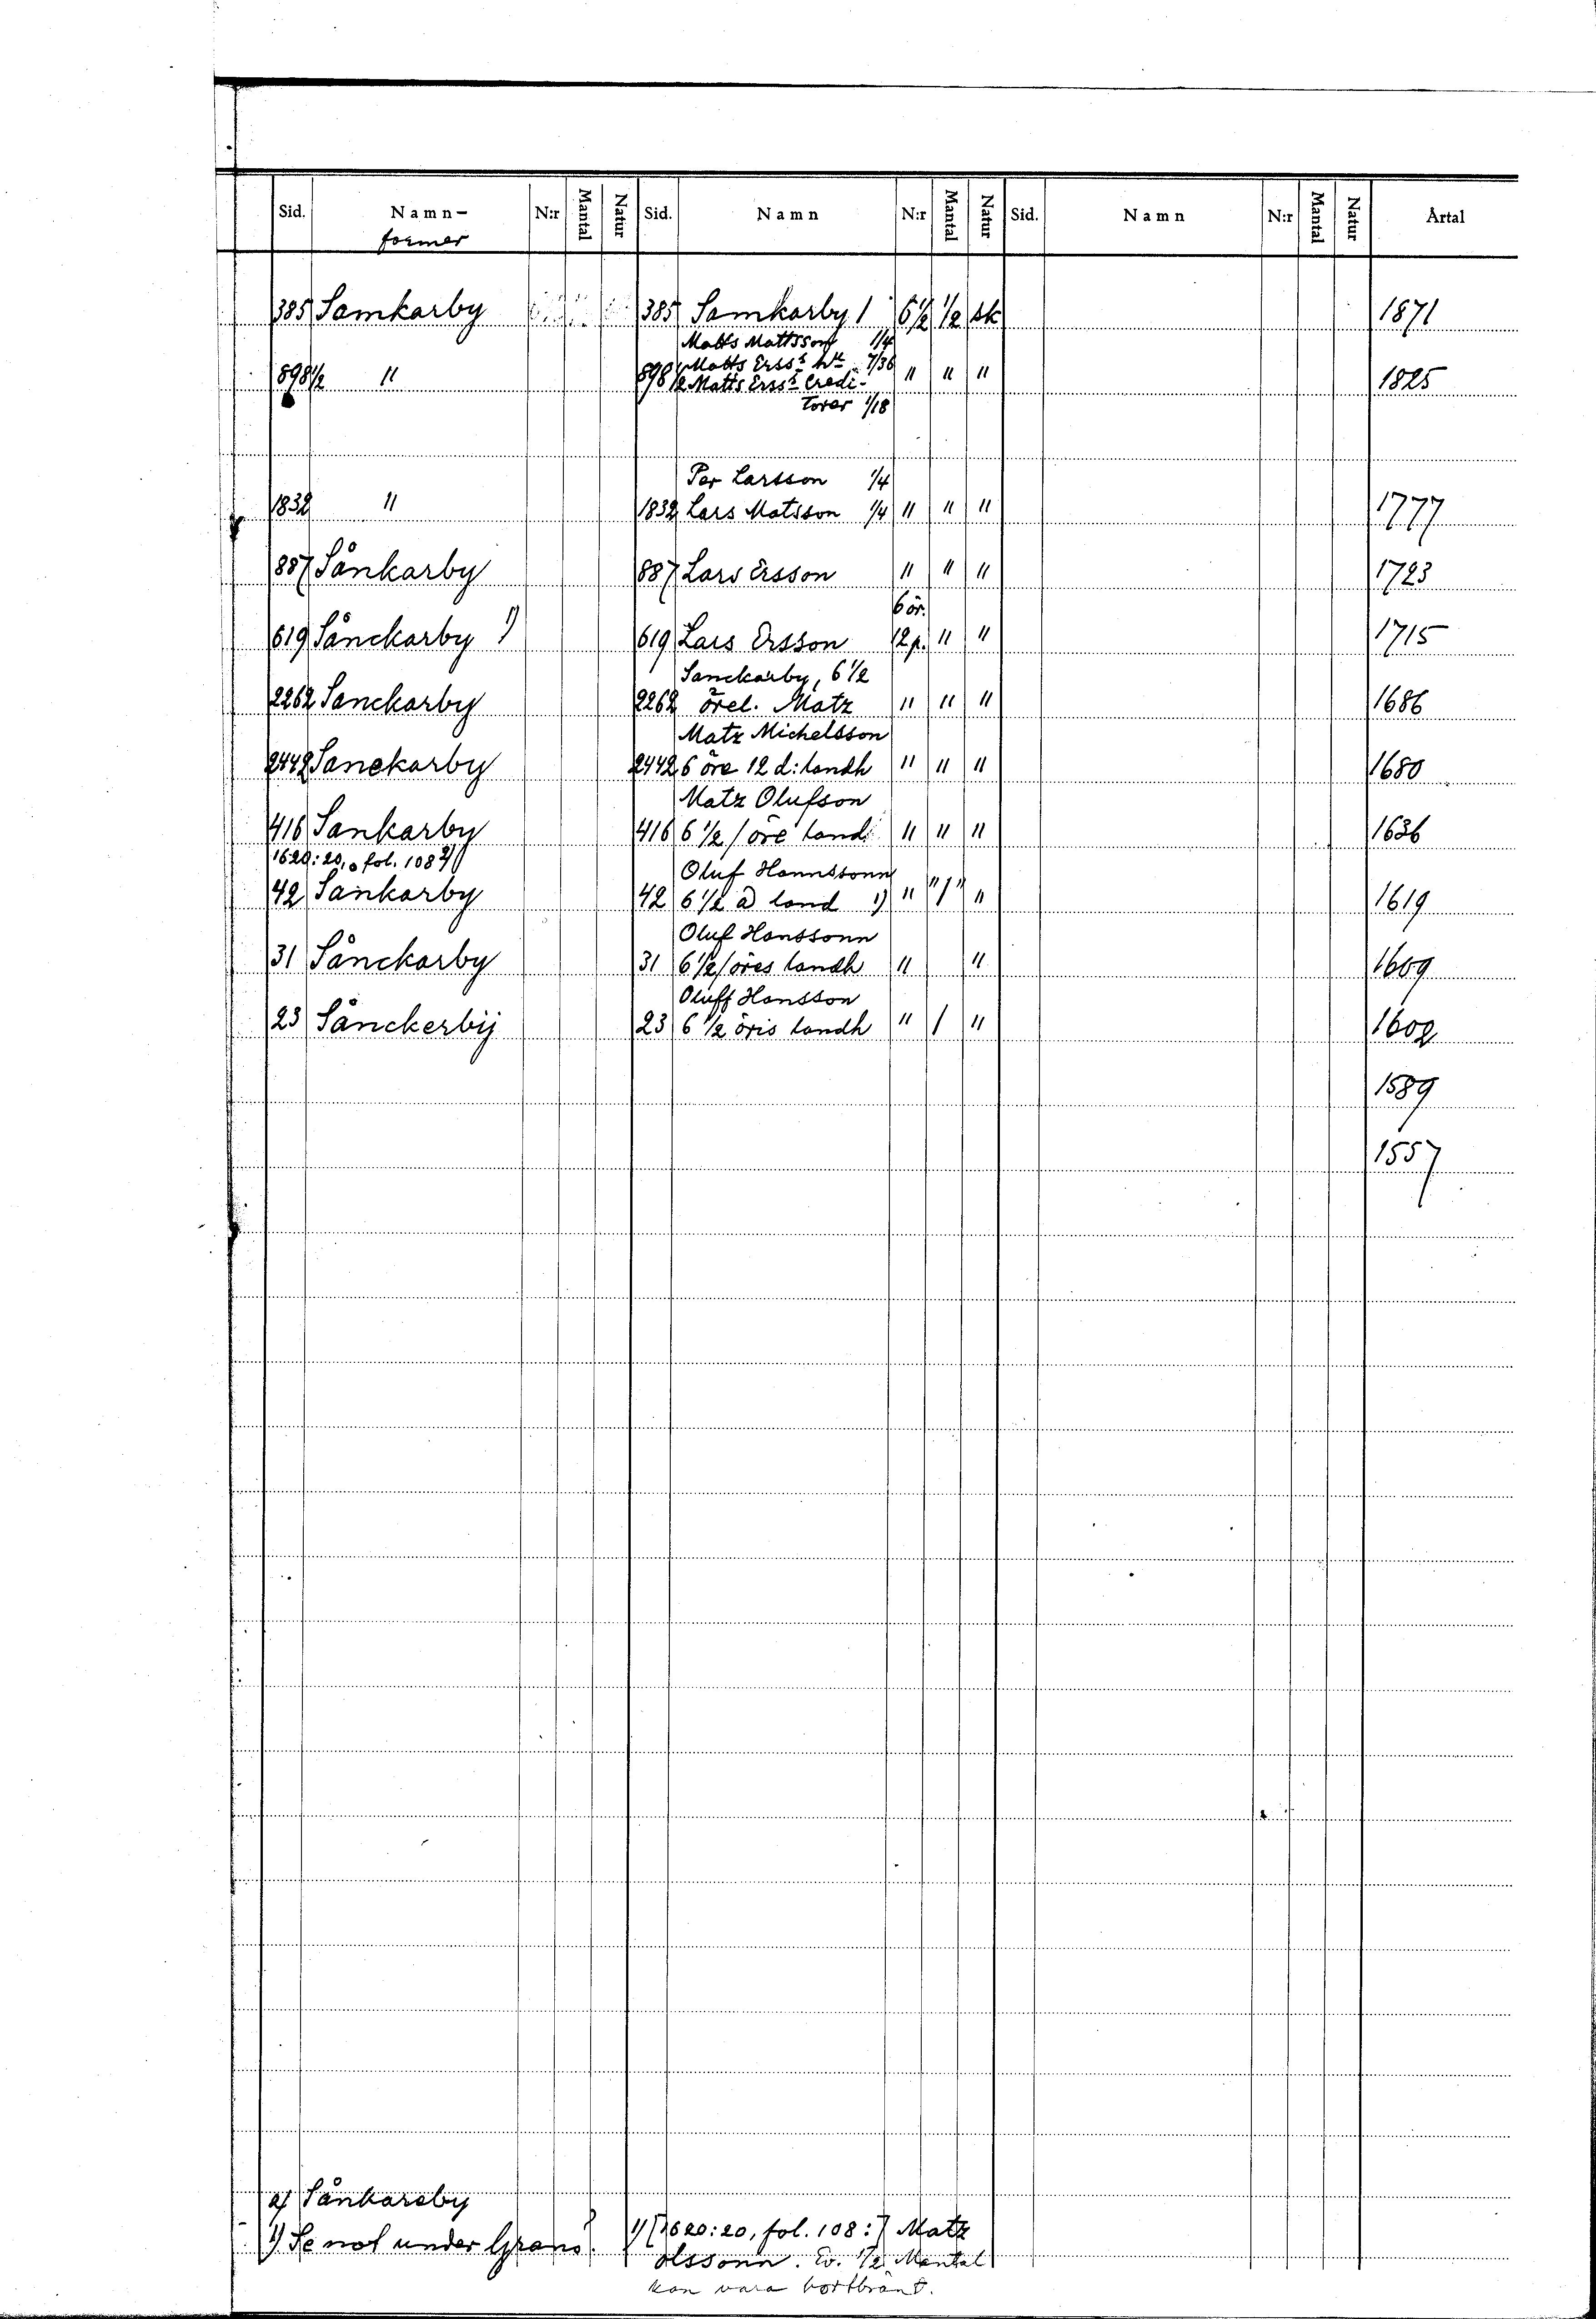 Sid. Namn- N:r Mantal Natur Sid. Namn N:r Mantal Natur Sid. Namn N:r Mantal Natur Årtal
former
385 Samkarby 385 Samkarby 1 6 1/2 1/2 sk 1871
Matts Mattsson 1/4
Matts Erss:s 7/36
898 1/2 " 898 1/2 Matts Erss:s Credi- " " " 1825
torer 1/18
Per Larsson 1/4
1832 " 1832 Lars Matsson 1/4 " " " 1777
887 Sånkarby 887 Lars Ersson " " " 1723
6 ör.
619 Sånckarby 1) 619 Lars Ersson 12 p. " " 1715
Sanckarby, 6 1/2
2262 Sanckarby 2262 örel. Matz " " " 1686
Matz Michelsson
2442 Sanckarby 2442 6 öre 12 d: landh " " " 1680
Matz Olufson
416 Sankarby 416 6 1/2 / öre land " " " 1636
1620:20, fol. 108 a) Oluf Hannssonn
42 Sankarby 42 6 1/2 land 1) " "/" " 1619
Oluf Hanssonn
31 Sånckarby 31 6 1/2 / öres landh " " 1609
Oluff Hansson
23 Sånckerbij 23 6 1/2 öris landh " / " 1602
1589
1557
a) Sånkareby
1) Se not under Grans? 1) [1620:20, fol. 108:] Matz
olssonn. Ev. 1/2 Mantal
kan vara bortbränt.